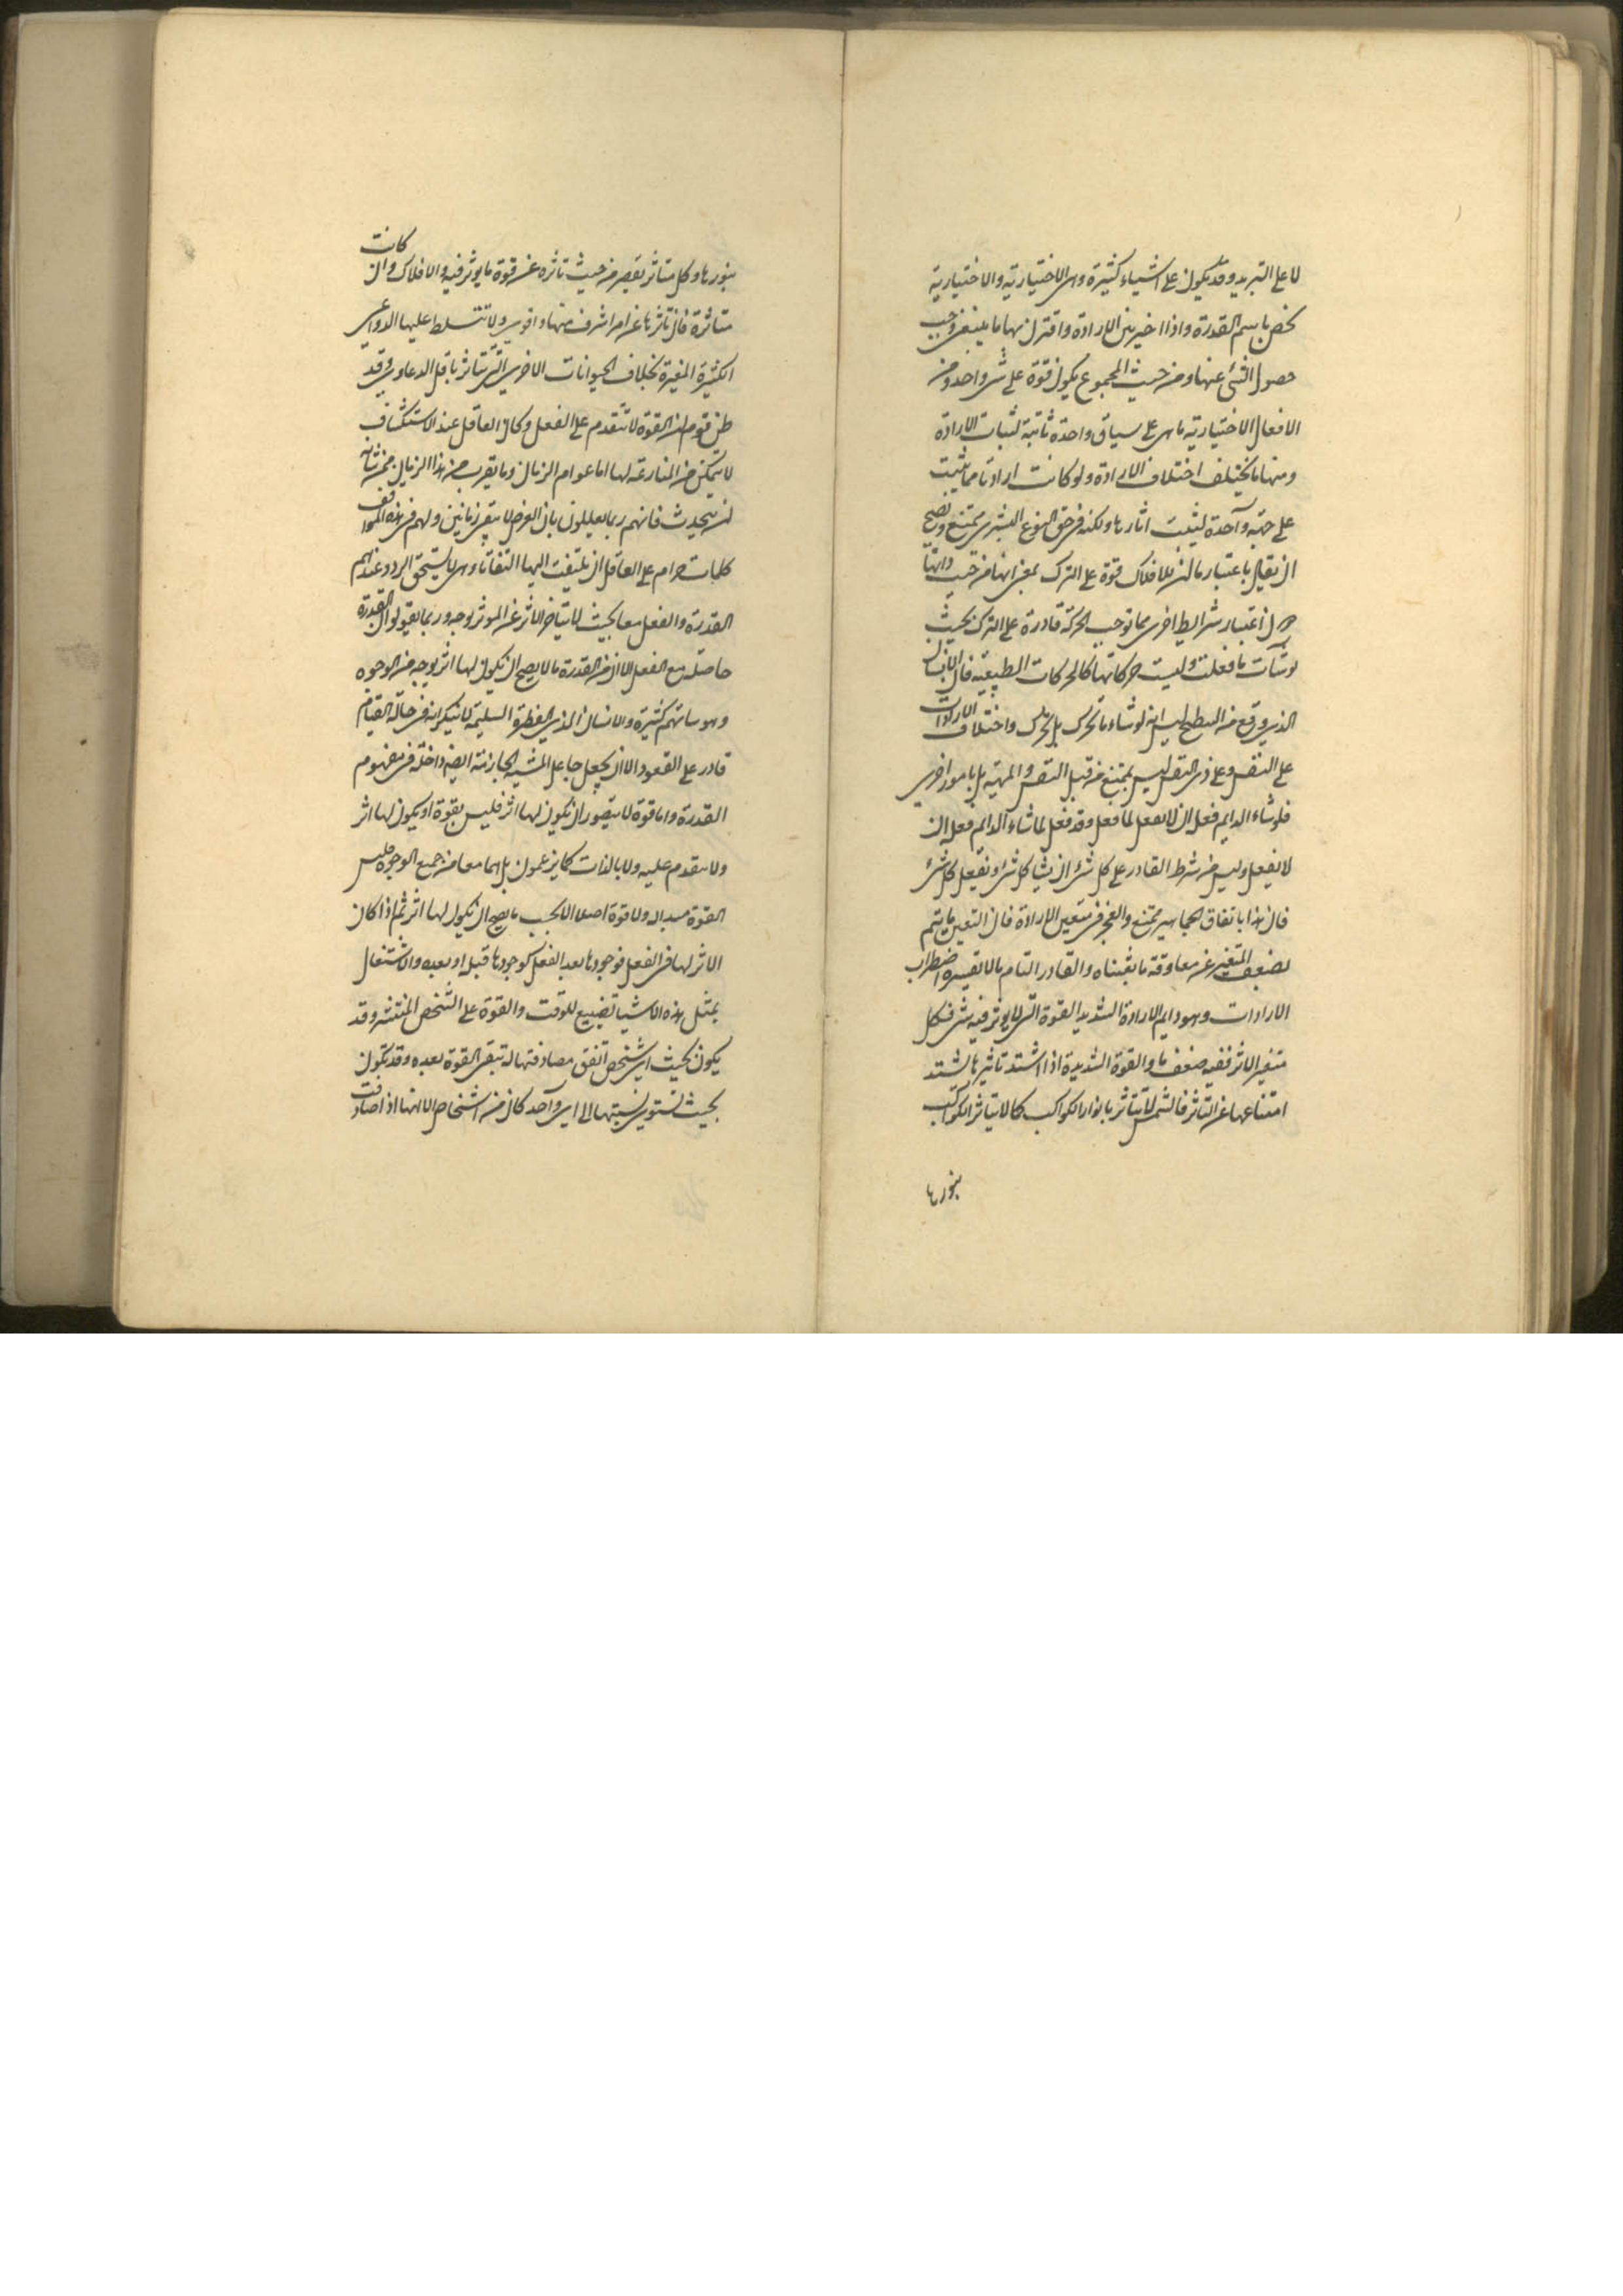 لا على التبريد وقد يكون على اشياء كثيرة وهى الاختيارية والاختيارية
يخص باسم القدرة واذا اخير بين الارادة واقترن بها ما ينبغى وجب
حصول الشئ عنها ومن حيث المجموع يكون قوة على شى واحد ومن
الافعال الاختيارية ما هى على سياق واحدة ثابتة لثبات الارادة
ومنها ما يختلف اختلاف الارادة ولو كانت ارادتنا مما يثبت
على جهة واحدة لثبتت اثارها ولكنه فى حق النوع البشرى ممتنع ويصح
ان يقال باعتبار ما ان للافلاك قوة على الترك بمعنى انها من حيث ذاتها
دون اعتبار شرائط اخرى مما توجب الحركة قادرة على الترك بحيث
لو شات ما فعلت وليست حركاتها كالحركات الطبيعية فان الانسان
الذى وقع من السطح ليس انه لو شاء ما تحرك بل تحرك واختلاف الارادات
على النفس وعلى ذى النفس ليس بممتنع من قبل النفس والمهية بل بامور اخرى
فلو شاء الدايم فعل ان لا يفعل لما فعل وقد فعل لما شاء الدايم فعل ان
لا يفعل وليس من شرط القادر على كل شئ ان يشا كل شئ ويفعل كل شئ
فان هذا باتفاق الجماهير ممتنع والعجز فى تعين الارادة فان التعين ما يتم
لضعف المتغير عن معاوقة ما يثبناه والقادر التام ما لا تغيره اضطراب
الارادات وهو دايم الارادة الشديد القوة التى لا يوثر فيه شى فكل
متغير الاثر ففيه ضعف ما والقوة الشديدة اذا اشتد تاثيرها اشتد
امتناعها عن التاثر فالشمس لا يتاثر بانوار الكواكب كما لا يتاثر الكواكب
بنورها
بنورها وكل متاثر يقصر من حيث تاثره عن قوة ما يوثر فيه والافلاك وان كانت
متاثرة فان تاثرها عن امر اشرف منها واقوى ولا تتسلط عليها الدواعى
الكثيرة المغيرة بخلاف الحيوانات الاخرى التى يتاثر باقل الدعاوى وقد
ظن قوم ان القوة لا تتقدم على الفعل وكان العاقل عند الاستكشاف
لا يتمكن من المنازعة لها اما عوام الزمان وما يقرب من هذا الزمان ممن شانه
ان يتحدث فانهم ربما يعللون بان العرض لا يبقى زمانين ولهم فى هذه المواقف
كلمات حرام على العاقل ان يلتفت اليها التفاتا وهى لا يستحق الرد وعندهم
القدرة والفعل معا بحيث لا يتاخر الاثر عن الموثر بوجه وربما يقولوا ان القدرة
حاصلة مع الفعل الا ان من القدرة ما لا يصح ان يكون لها اثر بوجه من الوجوه
وهوساتهم كثيرة والانسان الذى الفطرة السليمة لا ينكر انه فى حالة القيام
قادر على القعود الا ان يجعل جاعل المشية الجازمة ايضه داخلة فى مفهوم
القدرة واما قوة لا يتصور ان يكون لها اثر فليس بقوة او يكون لها اثر
ولا يتقدم عليه ولا بالذات كما يزعمون بل هما معا من جميع الوجوه فليس
القوة مبدا له ولا قوة اصلا الا بحيث ما يصح ان يكون لها اثر ثم اذا كان
الاثر لها فى الفعل فوجودها بعد الفعل كوجودها قبله او بعده والاشتغال
بمثل هذه الاشيا تضييع للوقت والقوة على الشخص المنتشر وقد
يكون بحيث اى شخص اتفق مصادفتها له تبقى القوة بعده وقد يكون
بحيث تستوى نسبتها الى اى واحد كان من اشخاص الا انها اذا صادفت